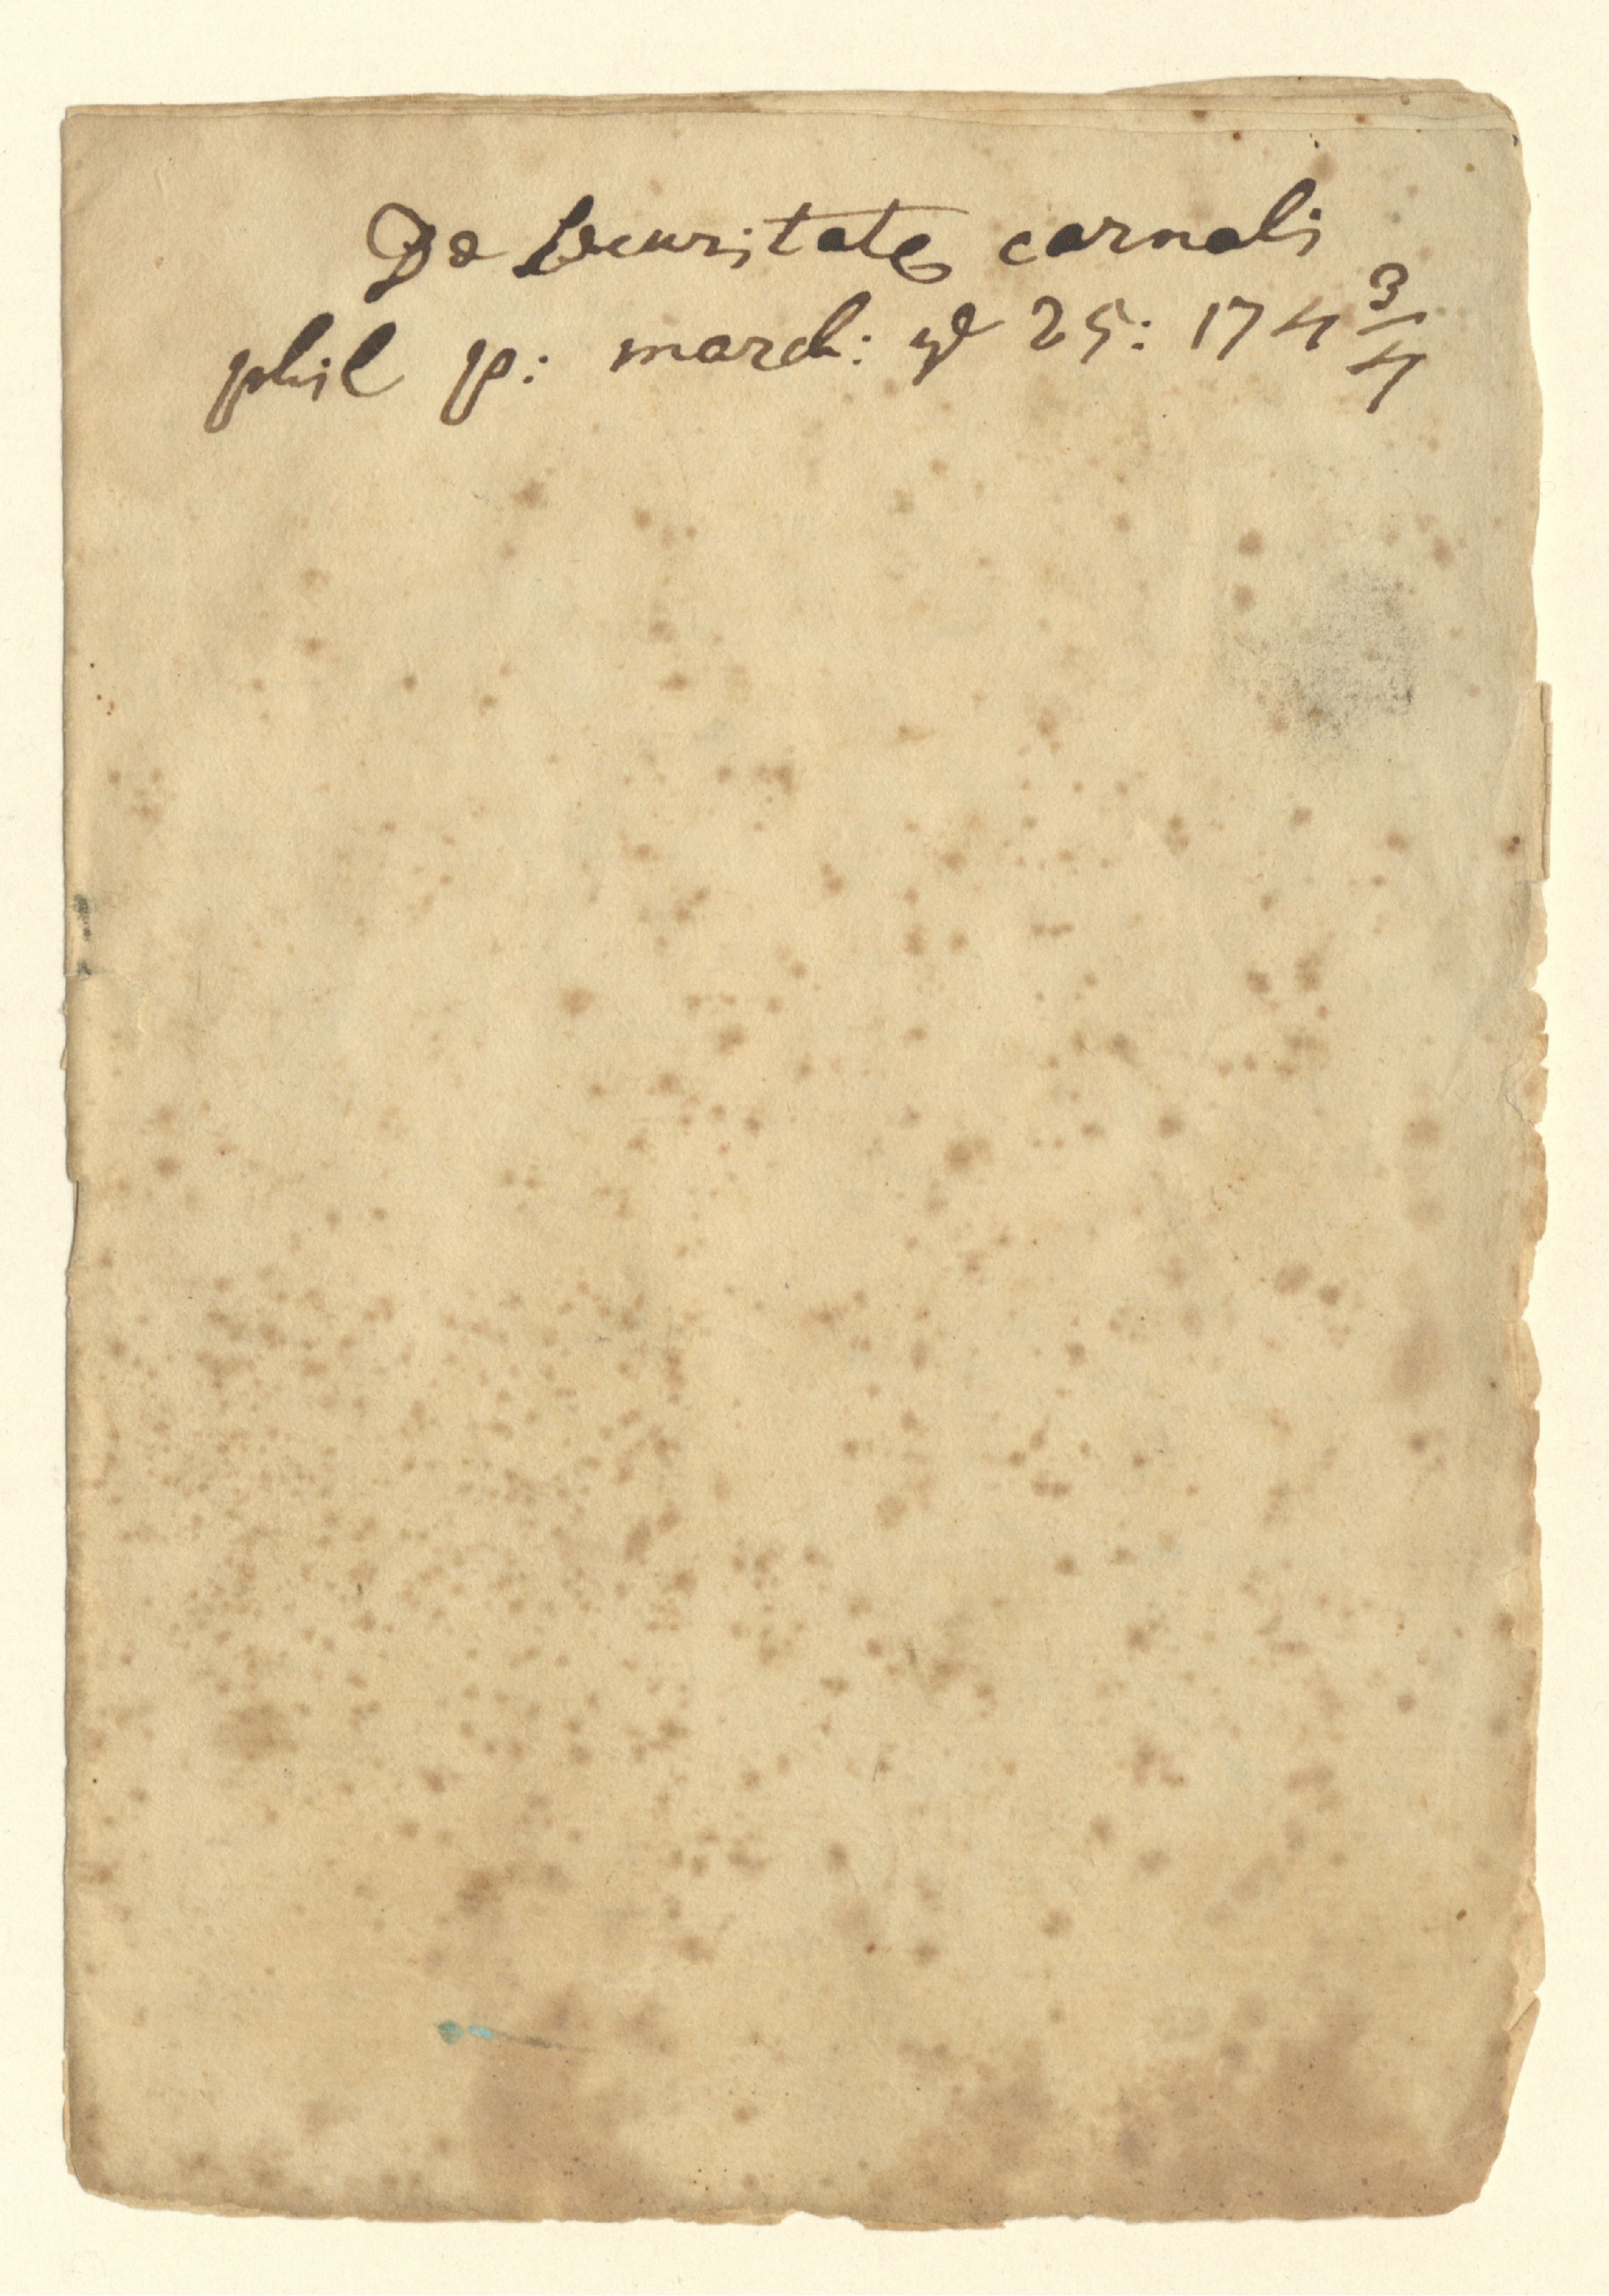 De Securitate carnali
phil p: march: ye 25: 174 3/4